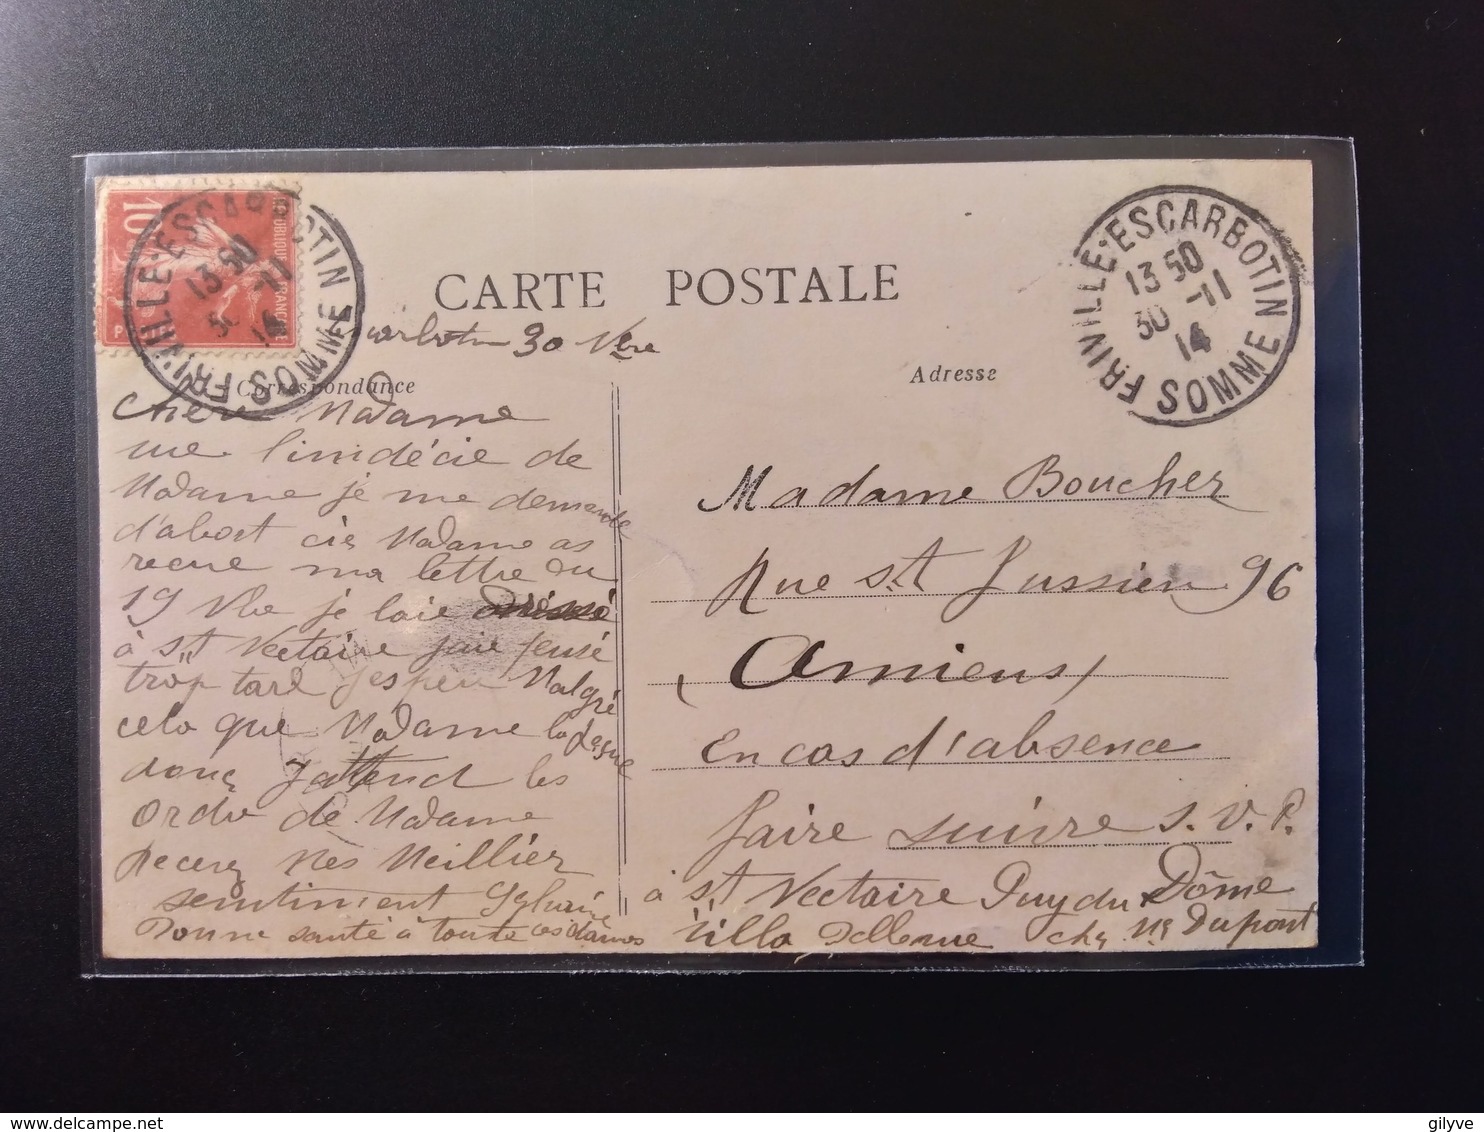 10
RÉPUBLIQUE FRANÇAISE
FRIVILLE-ESCARBOTIN SOMME
13 50
30 -11
14
CARTE POSTALE
FRIVILLE-ESCARBOTIN SOMME
13 50
30 -11
14
30 Vbre
Correspondance
Adresse
Chère Madame
vue l'inidécie de
Madame je me demande
d'abort cie Madame as
recue ma lettre du
19 Vbre je laie
à st Nectaire jaie pensé
trop tard jesper Malgré
cela que Madame la
donc Jattend les
Ordre de Madame
Recevez Mes Meillier
sentiment Sylvaine
Bonne santé à toute ces dames
Madame Boucher
Rue st Jussien 96
(Amiens)
en cas d'absence
faire suivre S. V. P.
à st Nectaire Puy du Dôme
Villa Bellevue chez Me Dupont
gilyve